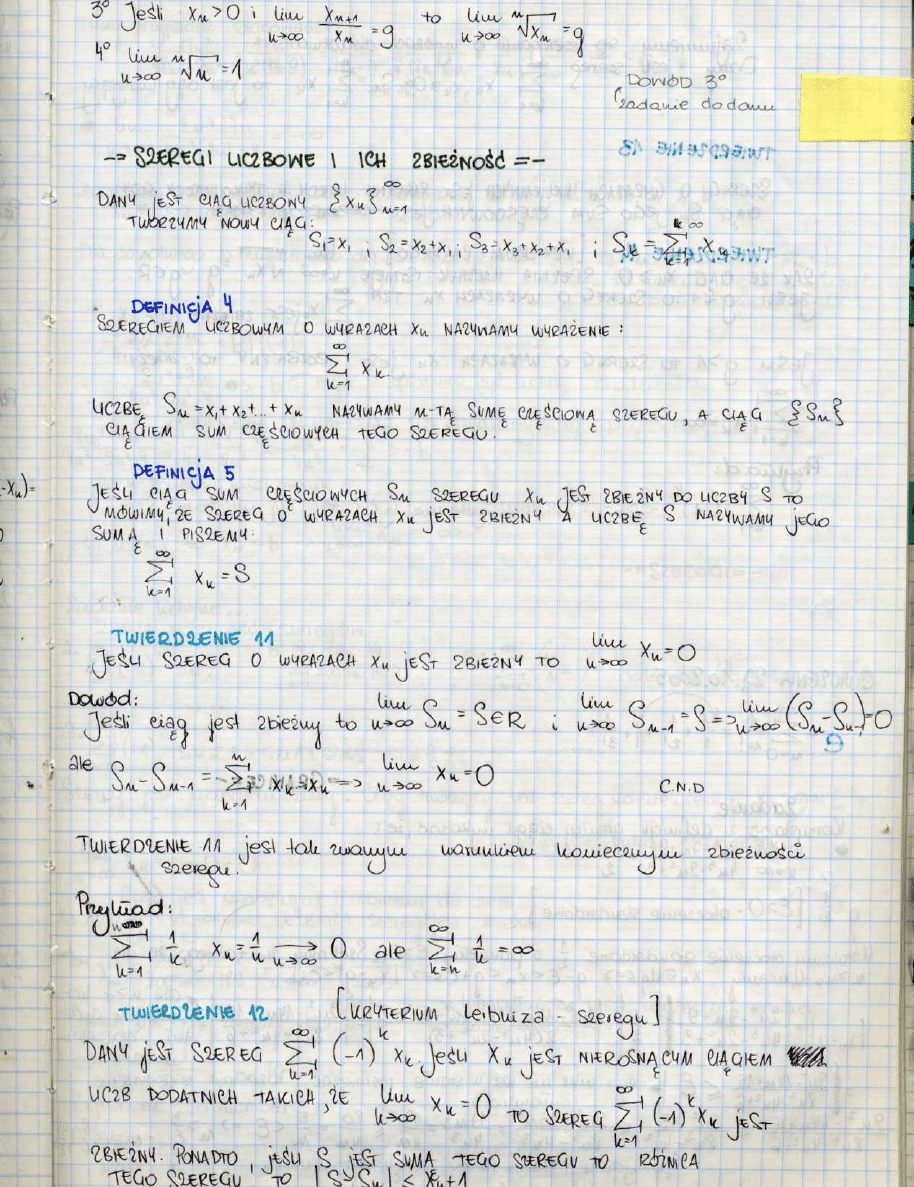 3° Jeśli xₙ>0 i lim n→∞ xₙ₊₁/xₙ = g to lim n→∞ ⁿ√xₙ = g
4° lim n→∞ ⁿ√n = 1
DOWÓD 3°
zadanie do domu
-= SZEREGI LICZBOWE I ICH ZBIEŻNOŚĆ =-
DANY JEST CIĄG LICZBOWY {xₙ}ₙ₌₁^∞
TWORZYMY NOWY CIĄG:
S₁=x₁ ; S₂=x₂+x₁ ; S₃=x₃+x₂+x₁ ; Sₖ=∑ₖ₌₁ xₖ
DEFINICJA 4
SZEREGIEM LICZBOWYM O WYRAZACH xₙ NAZYWAMY WYRAŻENIE :
∑ₖ₌₁^∞ xₖ.
LICZBĘ Sₙ=x₁+x₂+...+xₙ NAZYWAMY n-TĄ SUMĘ CZĘŚCIOWĄ SZEREGU, A CIĄG {Sₙ}
CIĄGIEM SUM CZĘŚCIOWYCH TEGO SZEREGU.
DEFINICJA 5
JEŚLI CIĄG SUM CZĘŚCIOWYCH Sₙ SZEREGU xₙ JEST ZBIEŻNY DO LICZBY S TO
MÓWIMY, ŻE SZEREG O WYRAZACH xₙ JEST ZBIEŻNY A LICZBĘ S NAZYWAMY JEGO
SUMĄ I PISZEMY:
∑ₖ₌₁^∞ xₖ = S
TWIERDZENIE 11
JEŚLI SZEREG O WYRAZACH xₙ JEST ZBIEŻNY TO lim n→∞ xₙ=0
Dowód:
Jeśli ciąg jest zbieżny to lim n→∞ Sₙ = S∈R i lim n→∞ Sₙ₋₁=S => lim n→∞ (Sₙ-Sₙ₋₁)=0
ale Sₙ-Sₙ₋₁ = ∑ₖ₌₁ⁿ xₖ=xₙ => lim n→∞ xₙ=0
C.N.D
TWIERDZENIE 11 jest tak zwanym warunkiem koniecznym zbieżności
szeregu.
Przykład:
∑ₖ₌₁ 1/k xₙ=1/n →n→∞ 0 ale ∑ₖ₌ₙ^∞ 1/k = ∞
TWIERDZENIE 12 [KRYTERIUM Leibniza - szeregu]
DANY JEST SZEREG ∑ₖ₌₁^∞ (-1)ᵏ xₖ. Jeśli xₖ JEST NIEROSNĄCYM CIĄGIEM
LICZB DODATNICH TAKICH, ŻE lim k→∞ xₖ=0 TO SZEREG ∑ₖ₌₁^∞ (-1)ᵏxₖ JEST
ZBIEŻNY. PONADTO, JEŚLI S JEST SUMĄ TEGO SZEREGU TO RÓŻNICA
TEGO SZEREGU TO |S-Sₙ| ≤ xₙ+1